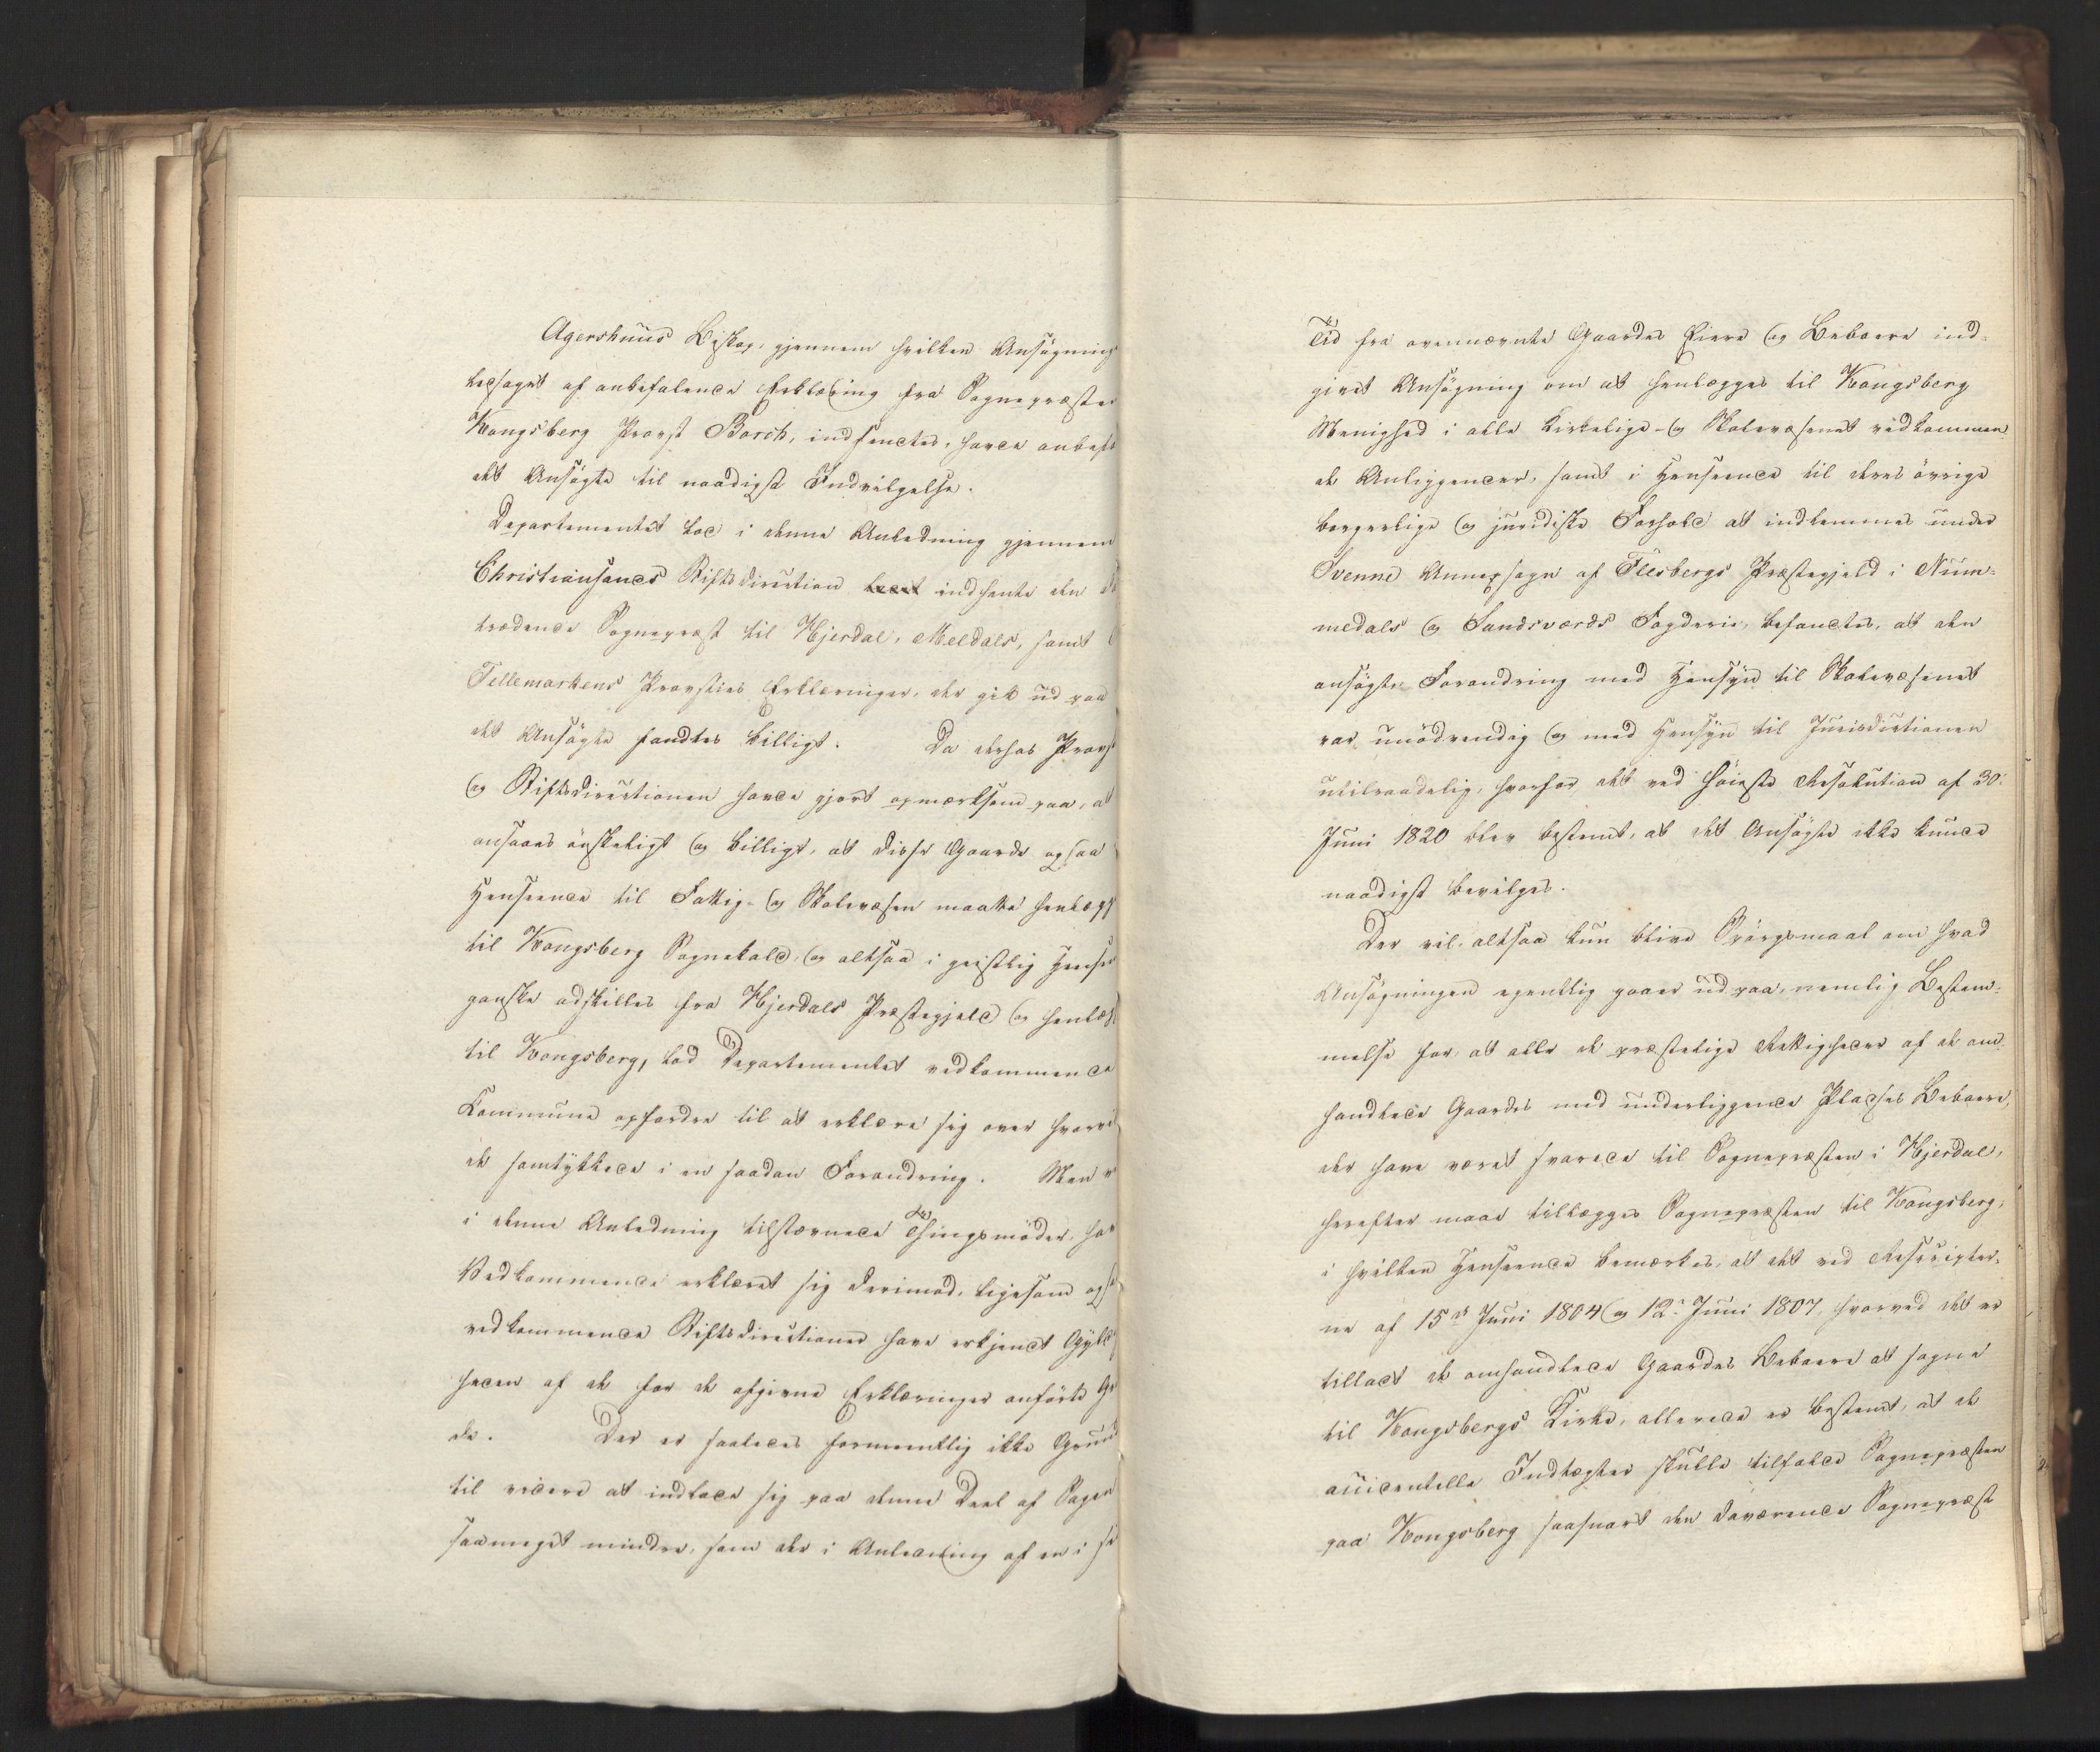 Agershuus Biskop, gjennem hvilken Ansøgning
ledsaget af anbefalende Erklæring fra Sognepræsten
Kongsberg Provst Borch, indsendtes, havde anbefal
det Ansøgte til naadigst Indvilgelse.
Departementet lod i denne Anledning gjennem
Christiansands Stiftsdirection indhente den
trædende Sognepræst til Hjerdal, Meldals, samt
Tellemarkens Provsties Erklæringer, der gik ud paa
det Ansøgte fandtes billigt. Da derhos Provst
og Stiftsdirectionen havde gjort opmærksom paa, at
ansaaes ønskeligt og billigt, at disse Gaarde ogsaa
Henseende til Fattig- og Skolevæsen maatte henlægg
til Kongsberg Sognekald, og altsaa i geistlig Hense
ganske adskilles fra Hjerdals Præstegjeld og henlæg
til Kongsberg, lod Departementet vedkommende
Kommune opfordre til at erklære sig over hvorvi
de samtykkede i en saadan Forandring. Men v
i denne Anledning tilstævnede Thingsmøder, har
Vedkommende erklæret sig derimod, ligesom ogs
vedkommende Stiftsdirectioner have erkjendt Gyldig
heden af de for de afgivne Erklæringer anførte Gr
de. Der er saaledes formeentlig ikke Grund
til videre at indlade sig paa denne Deel af Sagen
saameget mindre, som der i Anledning af en i
Tid fra ovennævnte Gaardes Eiere og Beboere ind-
givet Ansøgning om at henlægges til Kongsberg
Menighed i alle kirkelige- og Skolevæsenet vedkommen-
de Anliggender, samt i Henseende til deres øvrige
borgerlige og juridiske Forhold at indlemmes under
Svenne Annexsogn af Flesbergs Præstegjeld i Num-
medals og Sandsværds Fogderie, befandtes, at den
ansøgte Forandring med Hensyn til Skolevæsenet
var unødvendig og med Hensyn til Jurisdictionen
utilraadelig, hvorfor det ved høieste Resolution af 30.
Juni 1820 blev bestemt, at det Ansøgte ikke kunde
naadigst bevilges.
Der vil altsaa kun blive Spørgsmaal om hvad
Ansøgningen egentlig gaaer ud paa, nemlig Bestem-
melse for, at alle de præstelige Rettigheder af de om-
handlede Gaardes med underliggende Pladses Beboere,
der have været svarede til Sognepræsten i Hjerdal,
herefter maae tillægges Sognepræsten til Kongsberg,
i hvilken Henseende bemærkes, at det ved Rescripter-
ne af 15de Juni 1804 og 12. Juni 1807, hvorved det er
tilladt de omhandlede Gaardes Beboere at søgne
til Kongsbergs Kirke, allerede er bestemt, at de
accidentelle Indtægter skulle tilfalde Sognepræsten
paa Kongsberg saasnart den daværende Sognepræst